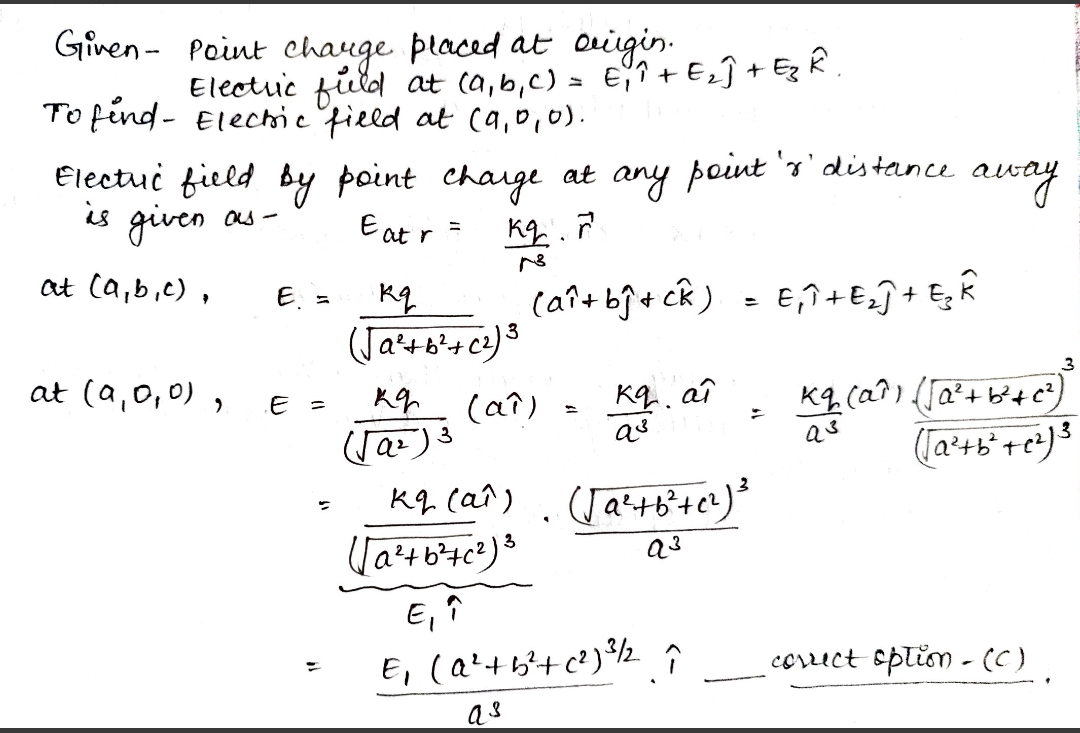 Given - Point charge placed at origin.
Electric field at (a,b,c) = E₁î + E₂ĵ + E₃k̂.
To find - Electric field at (a,0,0).
Electric field by point charge at any point 'r' distance away
is given as - E at r = Kq/r³ . r⃗
at (a,b,c), E. = Kq/(√a²+b²+c²)³ (aî+bĵ+ck̂) = E₁î+E₂ĵ+E₃k̂
at (a,0,0), E = Kq/(√a²)³ (aî) = Kq/a³ . aî = Kq/a³ (aî) . (√a²+b²+c²)³/(√a²+b²+c²)³
= Kq (aî)/(√a²+b²+c²)³ . (√a²+b²+c²)³/a³
E₁î
= E₁ (a²+b²+c²)^3/2/a³ . î __ correct option - (C).